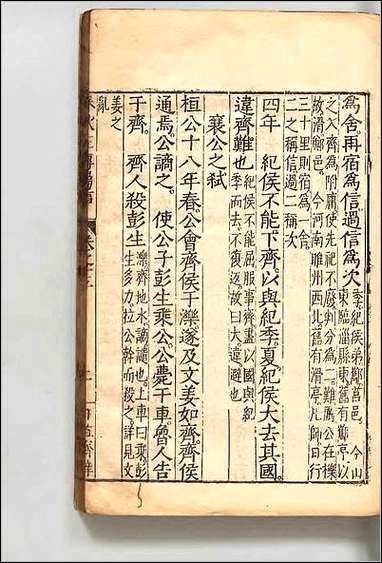 爲舍再宿爲信過信爲次 季紀侯弟酅莒邑 今山
東臨淄縣東舊有酅亭以
之入齊爲附庸使先祀不廢判分爲二難厲公在櫟
故滑鄭邑 今河南睢州西北舊有滑亭凡師日行
三十里則宿爲一舍
二之稱信過二稱次
四年 紀侯不能下齊以與紀季夏紀侯大去其國
違齊難也 紀侯不能屈服事齊盡以國與紀
季而去不復返故曰大違避也
襄公之弒
桓公十八年春公會齊侯于濼遂及文姜如齊齊侯
通焉公謫之 使公子彭生乘公公薨于車魯人告
于齊 齊人殺彭生 濼齊地水謫譴也上車曰乘彭
生多力拉公幹而殺之詳見文
姜之
亂